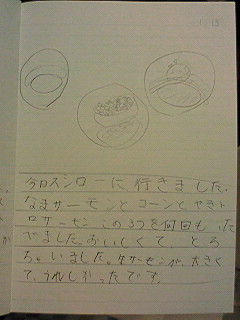 今日スシローに行きました。
なまサーモンとコーンとやきト
ロサーモン、この3つを何回も
ました。おいしくて、とろ
ちゃいました。サーモンが大きく
て、うれしかったです。